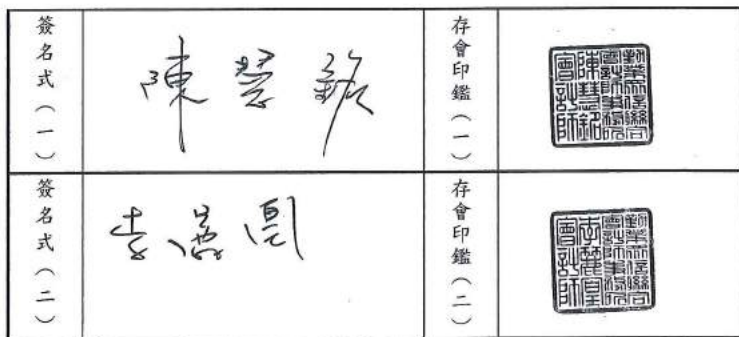 簽名式（一）
陳慧銘
存會印鑑（一）
勤業眾信聯合
會計師事務所
陳慧銘
會計師
簽名式（二）
存會印鑑（二）
勤業眾信聯合
會計師事務所
李麗凰
會計師